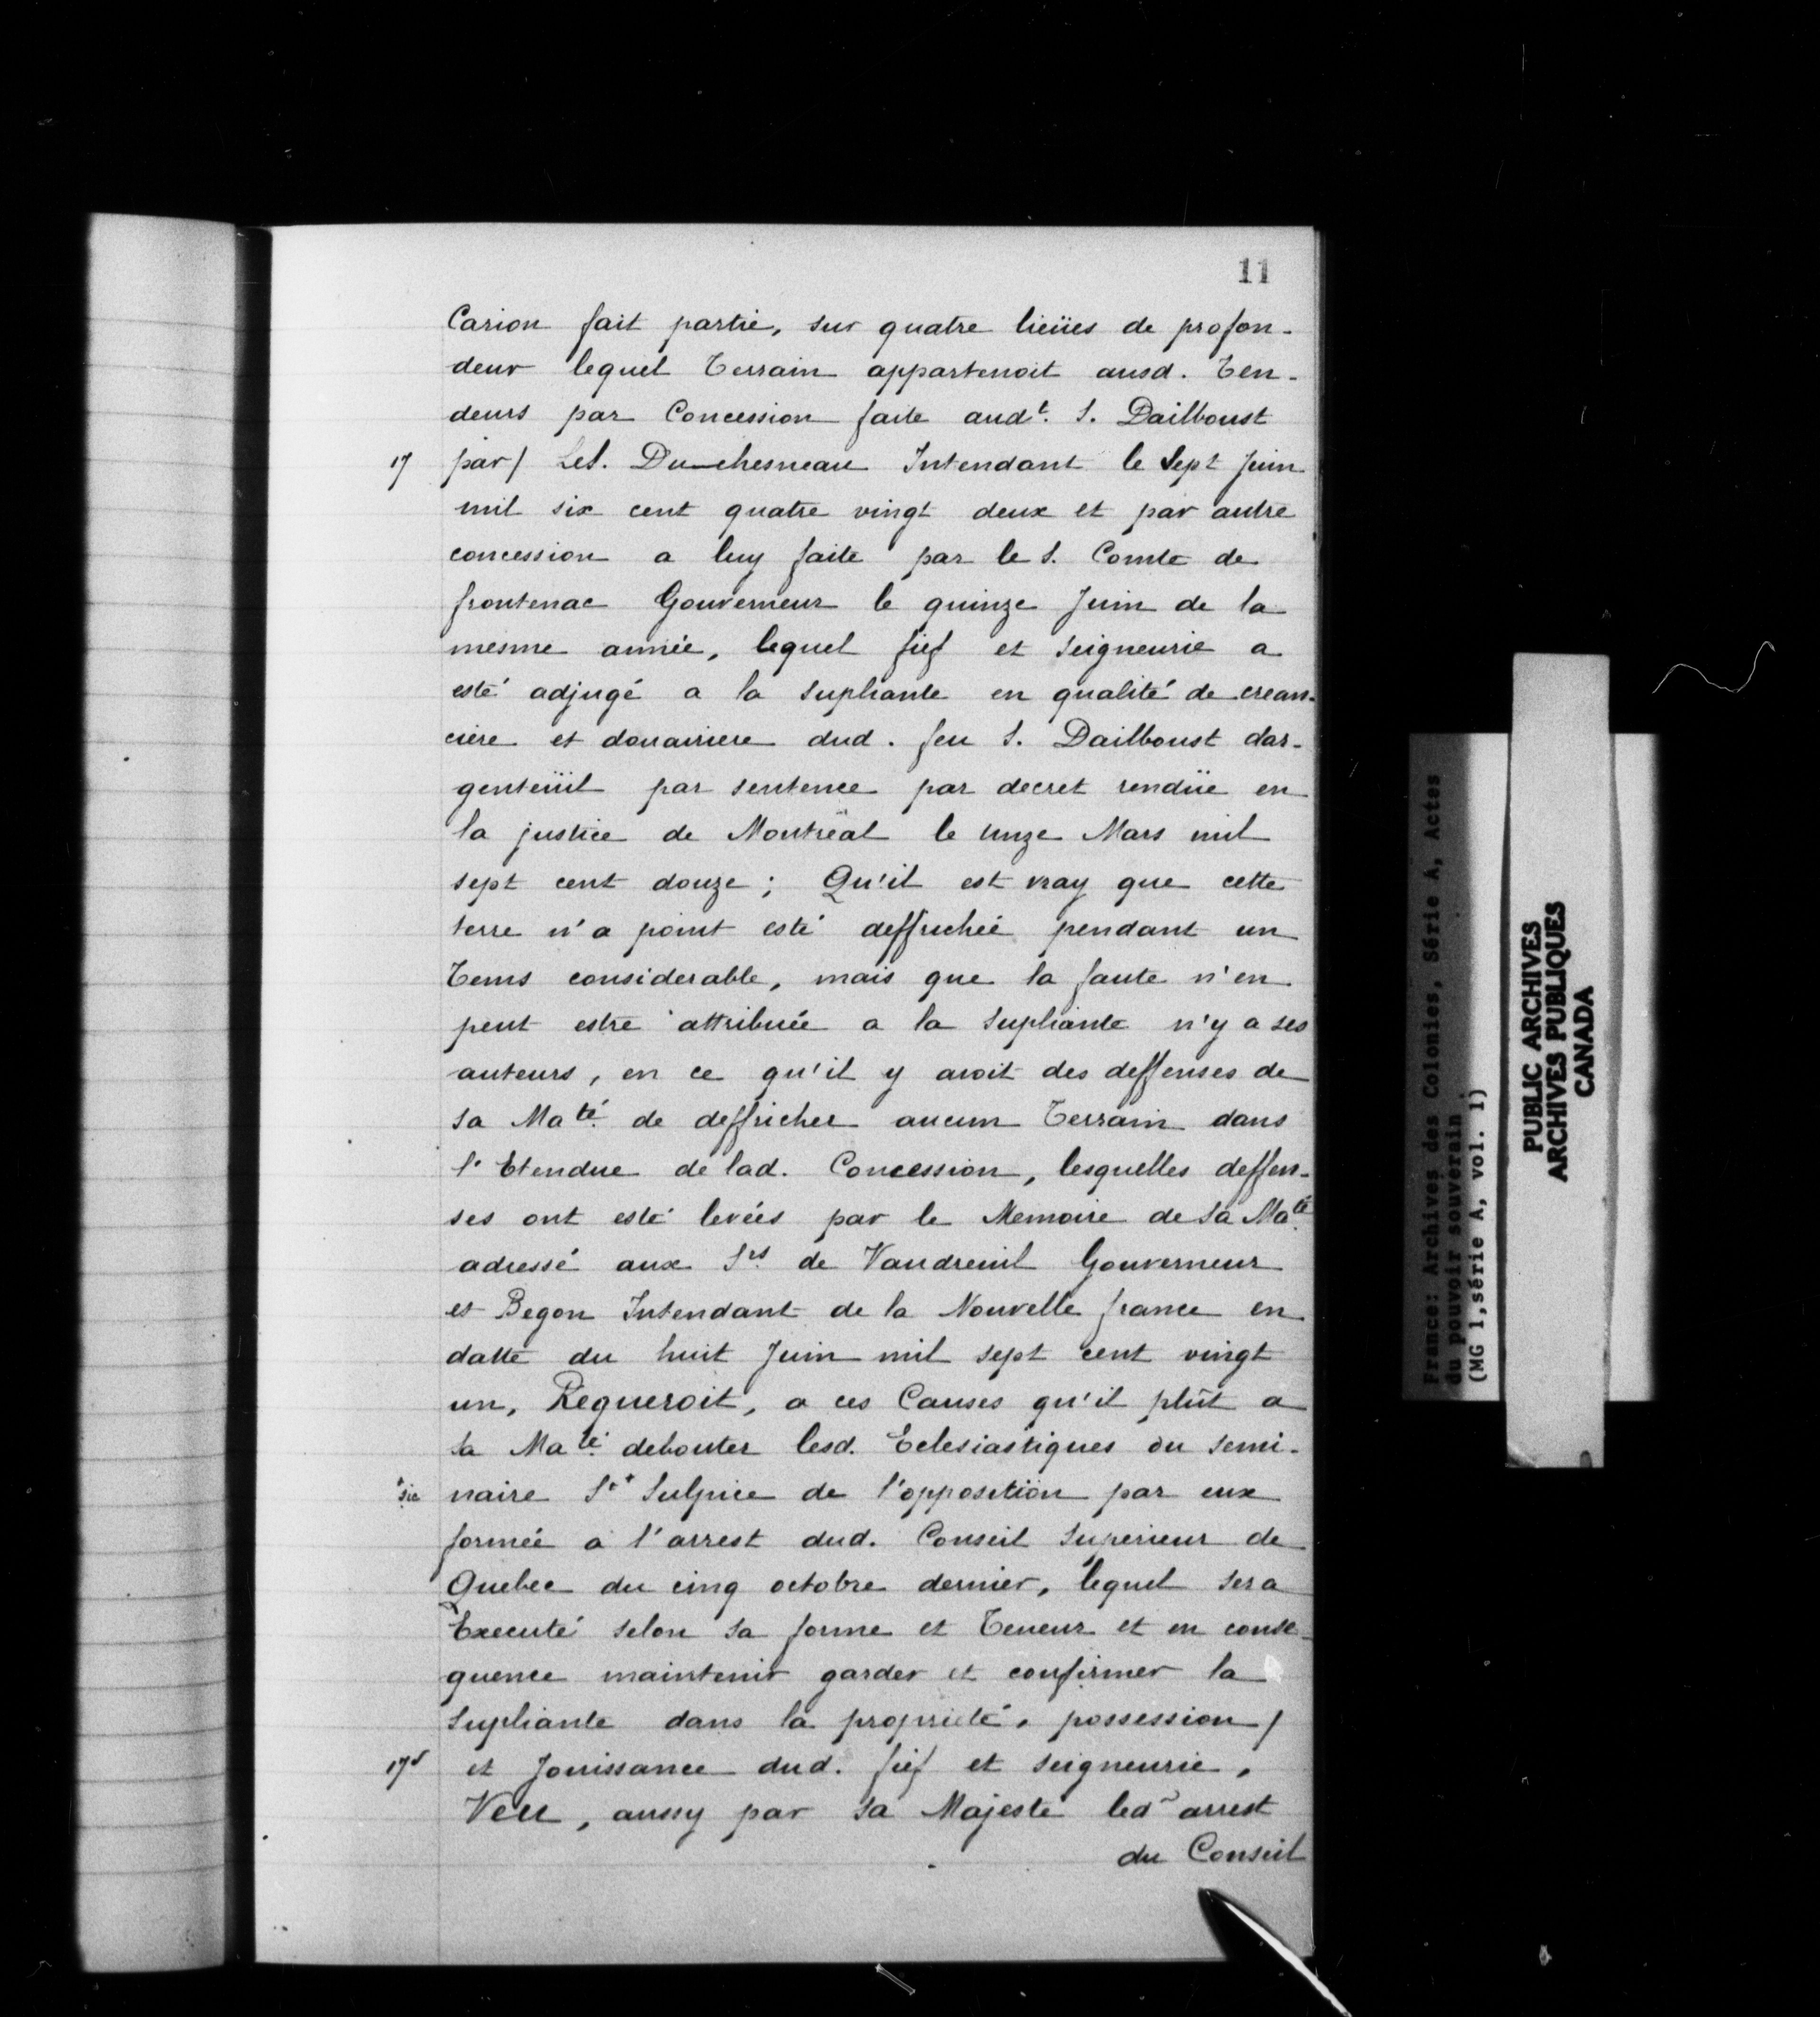 11
Carion fait partie, sur quatre lieües de profon-
deur lequel Terrain appartenoit ausd. Ven-
deurs par Concession faite audt. S. Dailboust
17 par/ Le S. Du-chesneau Intendant le Sept Juin
mil six cent quatre vingt deux et par autre
concession a luy faite par le S. Comte de
frontenac Gouverneur le quinze Juin de la
mesme année, lequel fief et Seigneurie a
esté adjugé a la Supliante en qualité de crean-
ciere et douairiere dud. feu S. Dailboust dar-
genteüil par sentence par decret rendüe en
la justice de Montreal le unze Mars mil
sept cent douze ; Qu'il est vray que cette
terre n'a point esté deffrichée pendant un
Tems considerable, mais que la faute n'en
peut estre attribuée a la Supliante n'y a ses
auteurs, en ce qu'il y avoit des deffenses de
Sa Maté. de deffricher aucun Terrain dans
l'Etendue de lad. Concession, lesquelles deffen-
ses ont esté levées par le Memoire de Sa Maté.
adressé aux Srs. de Vaudreuil Gouverneur
et Begon Intendant de la Nouvelle france en
datte du huit Juin mil sept cent vingt
un, Requeroit, a ces Causes qu'il plût a
Sa Maté. debouter lesd. Eclesiastiques du Semi-
sic naire St+ Sulpice de l'opposition par eux
formée a l'arrest dud. Conseil Superieur de
Quebec du cinq octobre dernier, lequel sera
Executé selon sa forme et Teneur et en conse-
quence maintenir garder et confirmer la
Supliante dans la propriété, possession/
17v et Jouissance dud. fief et seigneurie,
Veu, aussy par Sa Majesté led. arrest
du Conseil
France: Archives des Colonies, Série A, Actes
du pouvoir souverain
(MG 1, série A, vol. 1)
PUBLIC ARCHIVES
ARCHIVES PUBLIQUES
CANADA